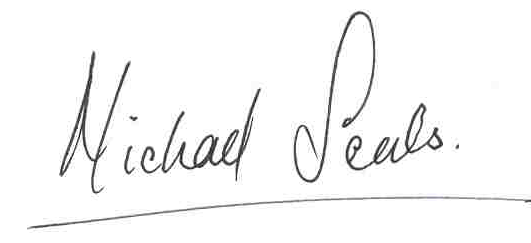 Michael Seals.